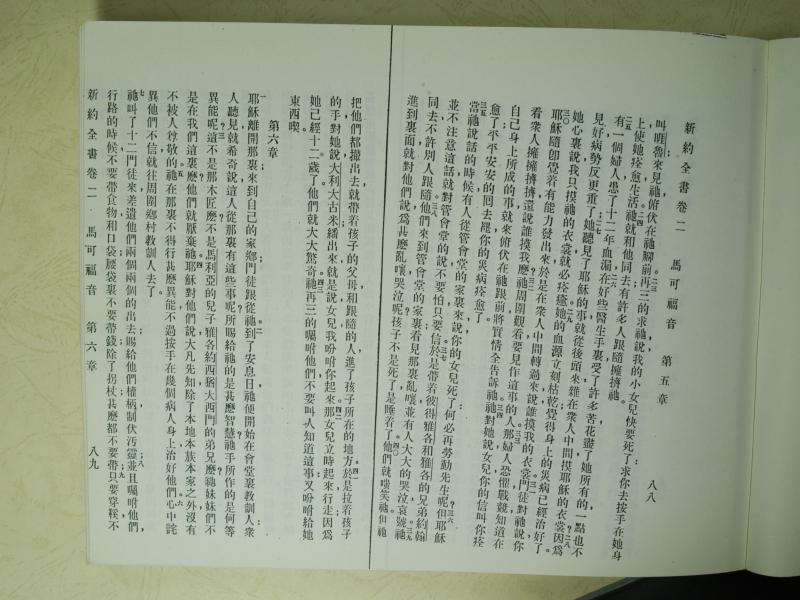 新約全書卷二　馬可福音　第五章　八八
叫睚魯來見祂俯伏在祂腳前再三的求祂說我的小女兒快要死了求你去按手在她身
上使她痊愈生活祂就和他同去有許多人跟隨擁擠祂
有一個婦人患了十二年血漏在好些醫生手裏受了許多苦花盡了她所有的一點也不
見好病勢反更重了她聽見了耶穌的事就從後頭來雜在衆人中間摸耶穌的衣裳因爲
她心裏說我只摸祂的衣裳就必痊癒她的血源立刻枯乾覺得身上的災病已經治好了
耶穌隨卽覺着有能力發出來於是在衆人中間轉過來說誰摸我的衣裳門徒對祂說你
看衆人擁擁擠擠還說誰摸我麽祂周圍觀看要見作這事的人那婦人恐懼戰兢知道在
自己身上所成的事就來俯伏在祂跟前將實情全告訴祂祂對她說女兒你的信叫你痊
愈了平平安安的回去罷你的災病痊愈了
當祂說話的時候有人從管會堂的家裏來說你的女兒死了何必再勞動先生呢但耶穌
並不注意這話就對管會堂的說不要怕只要信於是帶着彼得雅各和雅各的兄弟約翰
同去不許別人跟隨他們來到管會堂的家裏看見那裏亂嚷並有人大大的哭泣哀號祂
進到裏面就對他們說爲甚麽亂嚷哭泣呢孩子不是死了是睡着了他們就嗤笑祂但祂
把他們都攆出去就帶着孩子的父母和跟隨的人進了孩子所在的地方於是拉着孩子
的手對她說大利大古米繙出來就是說女兒我吩咐你起來那女兒立時起來行走因爲
她已經十二歲了他們就大大驚奇祂再三的囑咐他們不要叫人知道這事又吩咐給她
東西喫
第六章
耶穌離開那裏來到自己的家鄉門徒跟從祂到了安息日祂便開始在會堂裏教訓人衆
人聽見就希奇說這人從那裏有這些事呢所賜給祂的是甚麽智慧祂手所作的是何等
異能呢這不是那木匠麽不是馬利亞的兒子雅各約西猶大西門的弟兄麽祂妹妹們不
是在我們這裏麽他們就厭棄祂耶穌對他們說大凡先知除了本地本族本家之外沒有
不被人尊敬的祂在那裏不得行甚麽異能不過按手在幾個病人身上治好他們心中詫
異他們不信就往周圍鄉村教訓人去了
祂叫了十二門徒來差遣他們兩個兩個的出去賜給他們權柄制伏汚靈並且囑咐他們
行路的時候不要帶食物和口袋腰袋裏不要帶錢除了拐杖甚麽都不要帶只要穿鞵不
新約全書卷二　馬可福音　第六章　八九